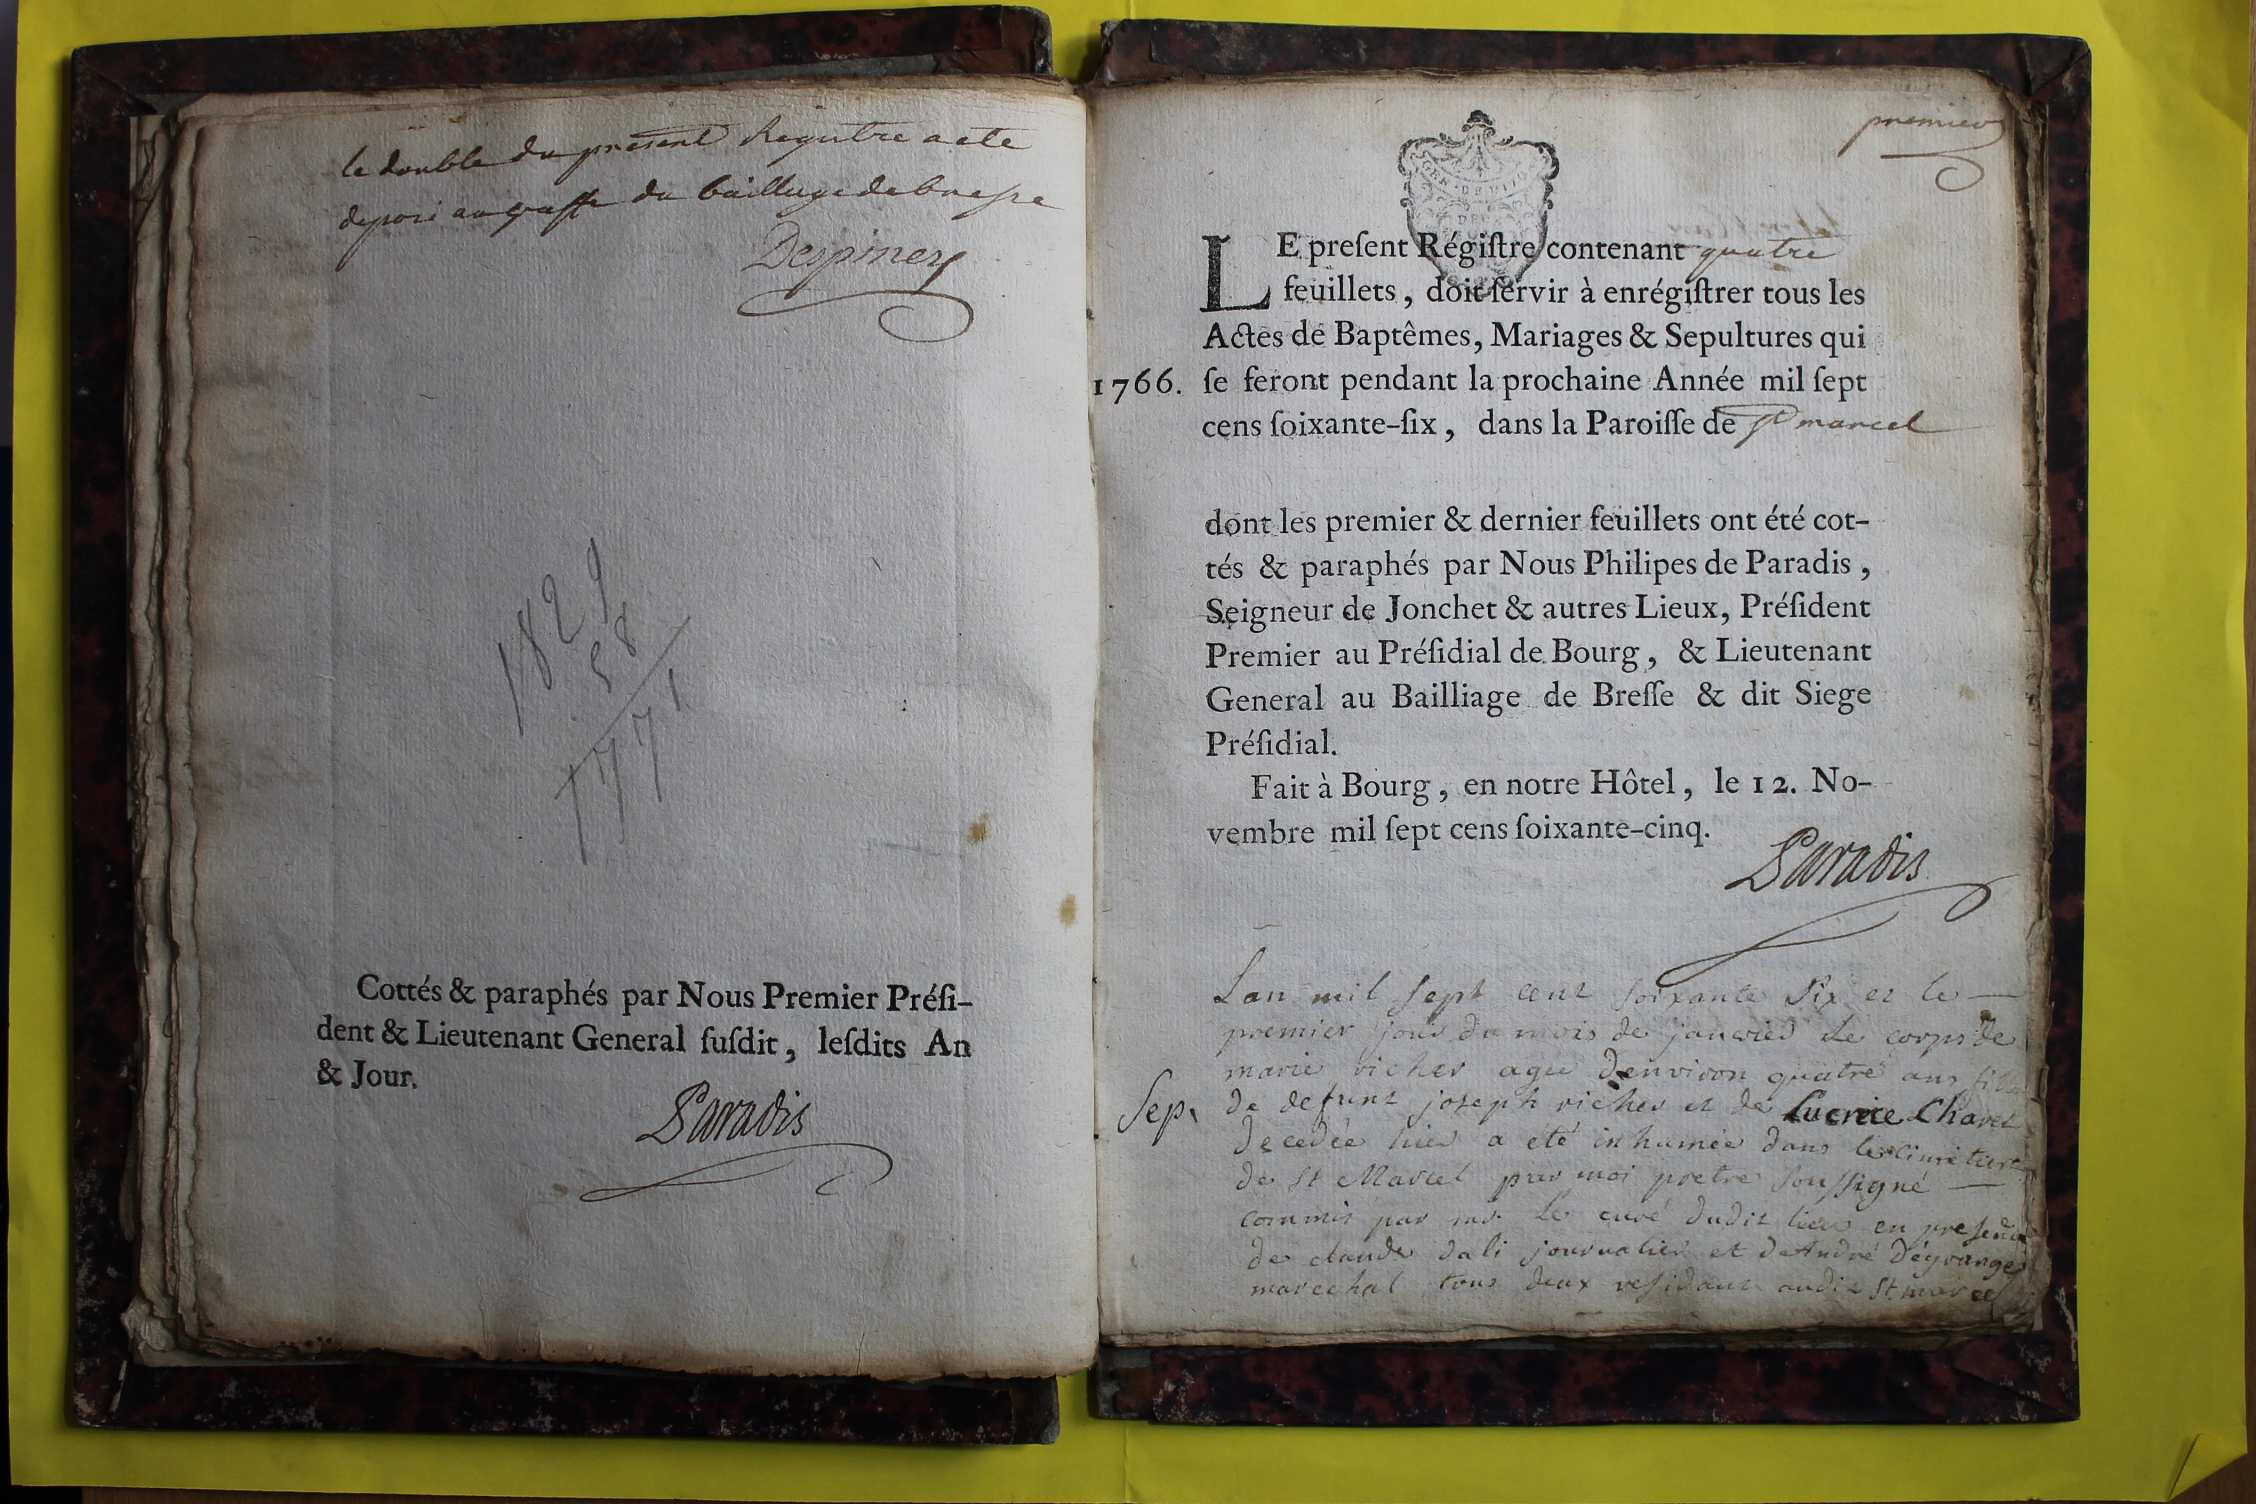 le double du present Regitre a ete
deposé au greffe du bailliage de bresse
Despiney
1829
58
1771
Cottés & paraphés par Nous Premier Préſi-
dent & Lieutenant General ſuſdit, leſdits An
& Jour.
Paradis
premier
GEN. DE DIJO
DEUX
LE preſent Régiſtre contenant quatre
feuillets, doit ſervir à enrégiſtrer tous les
Actes de Baptêmes, Mariages & Sepultures qui
1766. ſe feront pendant la prochaine Année mil ſept
cens ſoixante-ſix, dans la Paroiſſe de St marcel
dont les premier & dernier feuillets ont été cot-
tés & paraphés par Nous Philipes de Paradis,
Seigneur de Jonchet & autres Lieux, Préſident
Premier au Préſidial de Bourg, & Lieutenant
General au Bailliage de Breſſe & dit Siege
Préſidial.
Fait à Bourg, en notre Hôtel, le 12. No-
vembre mil ſept cens ſoixante-cinq.
Paradis
Lan mil sept cent soixante Six et le
premier jour du mois de janvier le corps de
marie richer agée Denviron quatre ans fille
Sep. de defunt joseph richer et de Lucrece Chavet
Decedée hier a eté inhumée dans le cimetiere
de St Marcel par moi pretre soussigné
commis par mr. le curé dudit lieu en presence
de claude dali journalier et de André Degrange
marechal tous deux residant audit St marcel